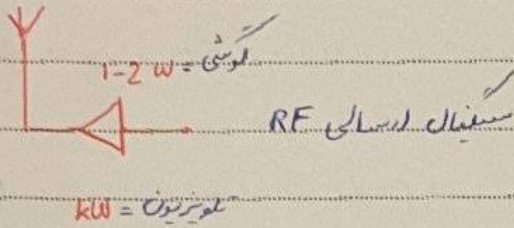 گوشی = 1-2 W
سیگنال ارسالی RF
تلویزیون = kW